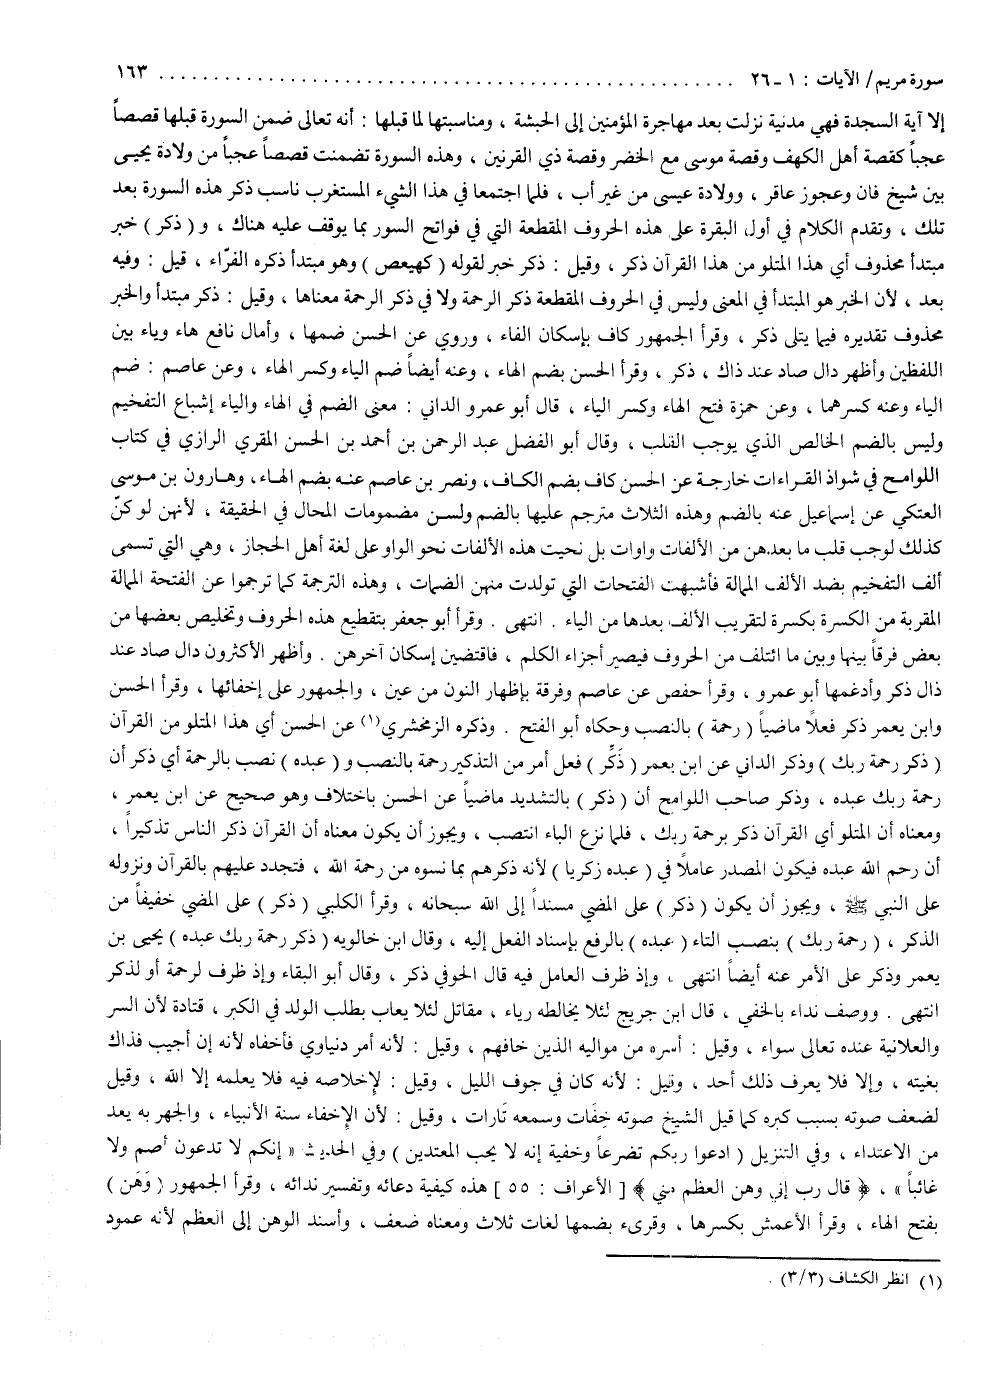 سورة مريم/ الآيات : ١ -٢٦ ............................................................ ١٦٣
إلا آية السجدة فهي مدنية نزلت بعد مهاجرة المؤمنين إلى الحبشة ، ومناسبتها لما قبلها : أنه تعالى ضمن السورة قبلها قصصاً
عجباً كقصة أهل الكهف وقصة موسى مع الخضر وقصة ذي القرنين ، وهذه السورة تضمنت قصصاً عجباً من ولادة يحيى
بين شيخ فان وعجوز عاقر ، وولادة عيسى من غير أب ، فلما اجتمعا في هذا الشيء المستغرب ناسب ذكر هذه السورة بعد
تلك ، وتقدم الكلام في أول البقرة على هذه الحروف المقطعة التي في فواتح السور بما يوقف عليه هناك ، و ( ذكر ) خبر
مبتدأ محذوف أي هذا المتلو من هذا القرآن ذكر ، وقيل : ذكر خبر لقوله ( كهيعص ) وهو مبتدأ ذكره الفرّاء ، قيل : وفيه
بعد ، لأن الخبر هو المبتدأ في المعنى وليس في الحروف المقطعة ذكر الرحمة ولا في ذكر الرحمة معناها ، وقيل : ذكر مبتدأ والخبر
محذوف تقديره فيما يتلى ذكر ، وقرأ الجمهور كاف بإسكان الفاء ، وروي عن الحسن ضمها ، وأمال نافع هاء وياء بين
اللفظين وأظهر دال صاد عند ذاك ، ذكر ، وقرأ الحسن بضم الهاء ، وعنه أيضاً ضم الياء وكسر الهاء ، وعن عاصم : ضم
الياء وعنه كسرهما ، وعن حمزة فتح الهاء وكسر الياء ، قال أبو عمرو الداني : معنى الضم في الهاء والياء إشباع التفخيم
وليس بالضم الخالص الذي يوجب القلب ، وقال أبو الفضل عبد الرحمن بن أحمد بن الحسن المقري الرازي في كتاب
اللوامح في شواذ القراءات خارجة عن الحسن كاف بضم الكاف، ونصر بن عاصم عنه بضم الهاء، وهارون بن موسى
العتكي عن إسماعيل عنه بالضم وهذه الثلاث مترجم عليها بالضم ولسن مضمومات المحال في الحقيقة ، لأنهن لو كنّ
كذلك لوجب قلب ما بعدهن من الألفات واوات بل نحيت هذه الألفات نحو الواو على لغة أهل الحجاز ، وهي التي تسمى
ألف التفخيم بضد الألف الممالة فأشبهت الفتحات التي تولدت منهن الضمات ، وهذه الترجمة كما ترجموا عن الفتحة الممالة
المقربة من الكسرة بكسرة لتقريب الألف بعدها من الياء . انتهى . وقرأ أبو جعفر بتقطيع هذه الحروف وتخليص بعضها من
بعض فرقاً بينها وبين ما ائتلف من الحروف فيصير أجزاء الكلم ، فاقتضين إسكان آخرهن . وأظهر الأكثرون دال صاد عند
ذال ذكر وأدغمها أبو عمرو ، وقرأ حفص عن عاصم وفرقة بإظهار النون من عين ، والجمهور على إخفائها ، وقرأ الحسن
وابن يعمر ذكر فعلاً ماضياً ( رحمة ) بالنصب وحكاه أبو الفتح . وذكره الزمخشري(١) عن الحسن أي هذا المتلو من القرآن
( ذكر رحمة ربك ) وذكر الداني عن ابن يعمر ( ذَكِّر ) فعل أمر من التذكير رحمة بالنصب و ( عبده ) نصب بالرحمة أي ذكر أن
رحمة ربك عبده ، وذكر صاحب اللوامح أن ( ذكر ) بالتشديد ماضياً عن الحسن باختلاف وهو صحيح عن ابن يعمر ،
ومعناه أن المتلو أي القرآن ذكر برحمة ربك ، فلما نزع الباء انتصب ، ويجوز أن يكون معناه أن القرآن ذكر الناس تذكيراً ،
أن رحم الله عبده فيكون المصدر عاملاً في ( عبده زكريا ) لأنه ذكرهم بما نسوه من رحمة الله ، فتجدد عليهم بالقرآن ونزوله
على النبي ﷺ ، ويجوز أن يكون ( ذكر ) على المضي مسنداً إلى الله سبحانه ، وقرأ الكلبي ( ذكر ) على المضي خفيفاً من
الذكر ، ( رحمة ربك ) بنصب التاء ( عبده ) بالرفع بإسناد الفعل إليه ، وقال ابن خالويه ( ذكر رحمة ربك عبده ) يحيى بن
يعمر وذكر على الأمر عنه أيضاً انتهى ، وإذ ظرف العامل فيه قال الحوفي ذكر ، وقال أبو البقاء وإذ ظرف لرحمة أو لذكر
انتهى . ووصف نداء بالخفي ، قال ابن جريج لئلا يخالطه رياء ، مقاتل لئلا يعاب بطلب الولد في الكبر ، قتادة لأن السر
والعلانية عنده تعالى سواء ، وقيل : أسره من مواليه الذين خافهم ، وقيل : لأنه أمر دنياوي فأخفاه لأنه إن أجيب فذاك
بغيته ، وإلا فلا يعرف ذلك أحد ، وقيل : لأنه كان في جوف الليل ، وقيل : لإخلاصه فيه فلا يعلمه إلا الله ، وقيل
لضعف صوته بسبب كبره كما قيل الشيخ صوته خِفَات وسمعه تَارات ، وقيل : لأن الإخفاء سنة الأنبياء ، والجهر به يعد
من الاعتداء ، وفي التنزيل ( ادعوا ربكم تضرعاً وخفية إنه لا يحب المعتدين ) وفي الحديث « إنكم لا تدعون أصم ولا
غائباً » ، ﴿ قال رب إني وهن العظم مني ﴾ [ الأعراف : ٥٥ ] هذه كيفية دعائه وتفسير ندائه ، وقرأ الجمهور ( وَهَن )
بفتح الهاء ، وقرأ الأعمش بكسرها ، وقرىء بضمها لغات ثلاث ومعناه ضعف ، وأسند الوهن إلى العظم لأنه عمود
(١) انظر الكشاف (٣/٣) .